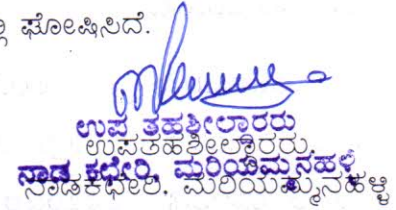 ಘೋಷಿಸಿದೆ.
ಉಪ ತಹಶೀಲ್ದಾರರು
ಉಪತಹಶೀಲ್ದಾರರು
ನಾಡ ಕಛೇರಿ, ಮರಿಯಮ್ಮನಹಳ್ಳಿ
ನಾಡಕಛೇರಿ. ಮರಿಯಮ್ಮನಹಳ್ಳಿ